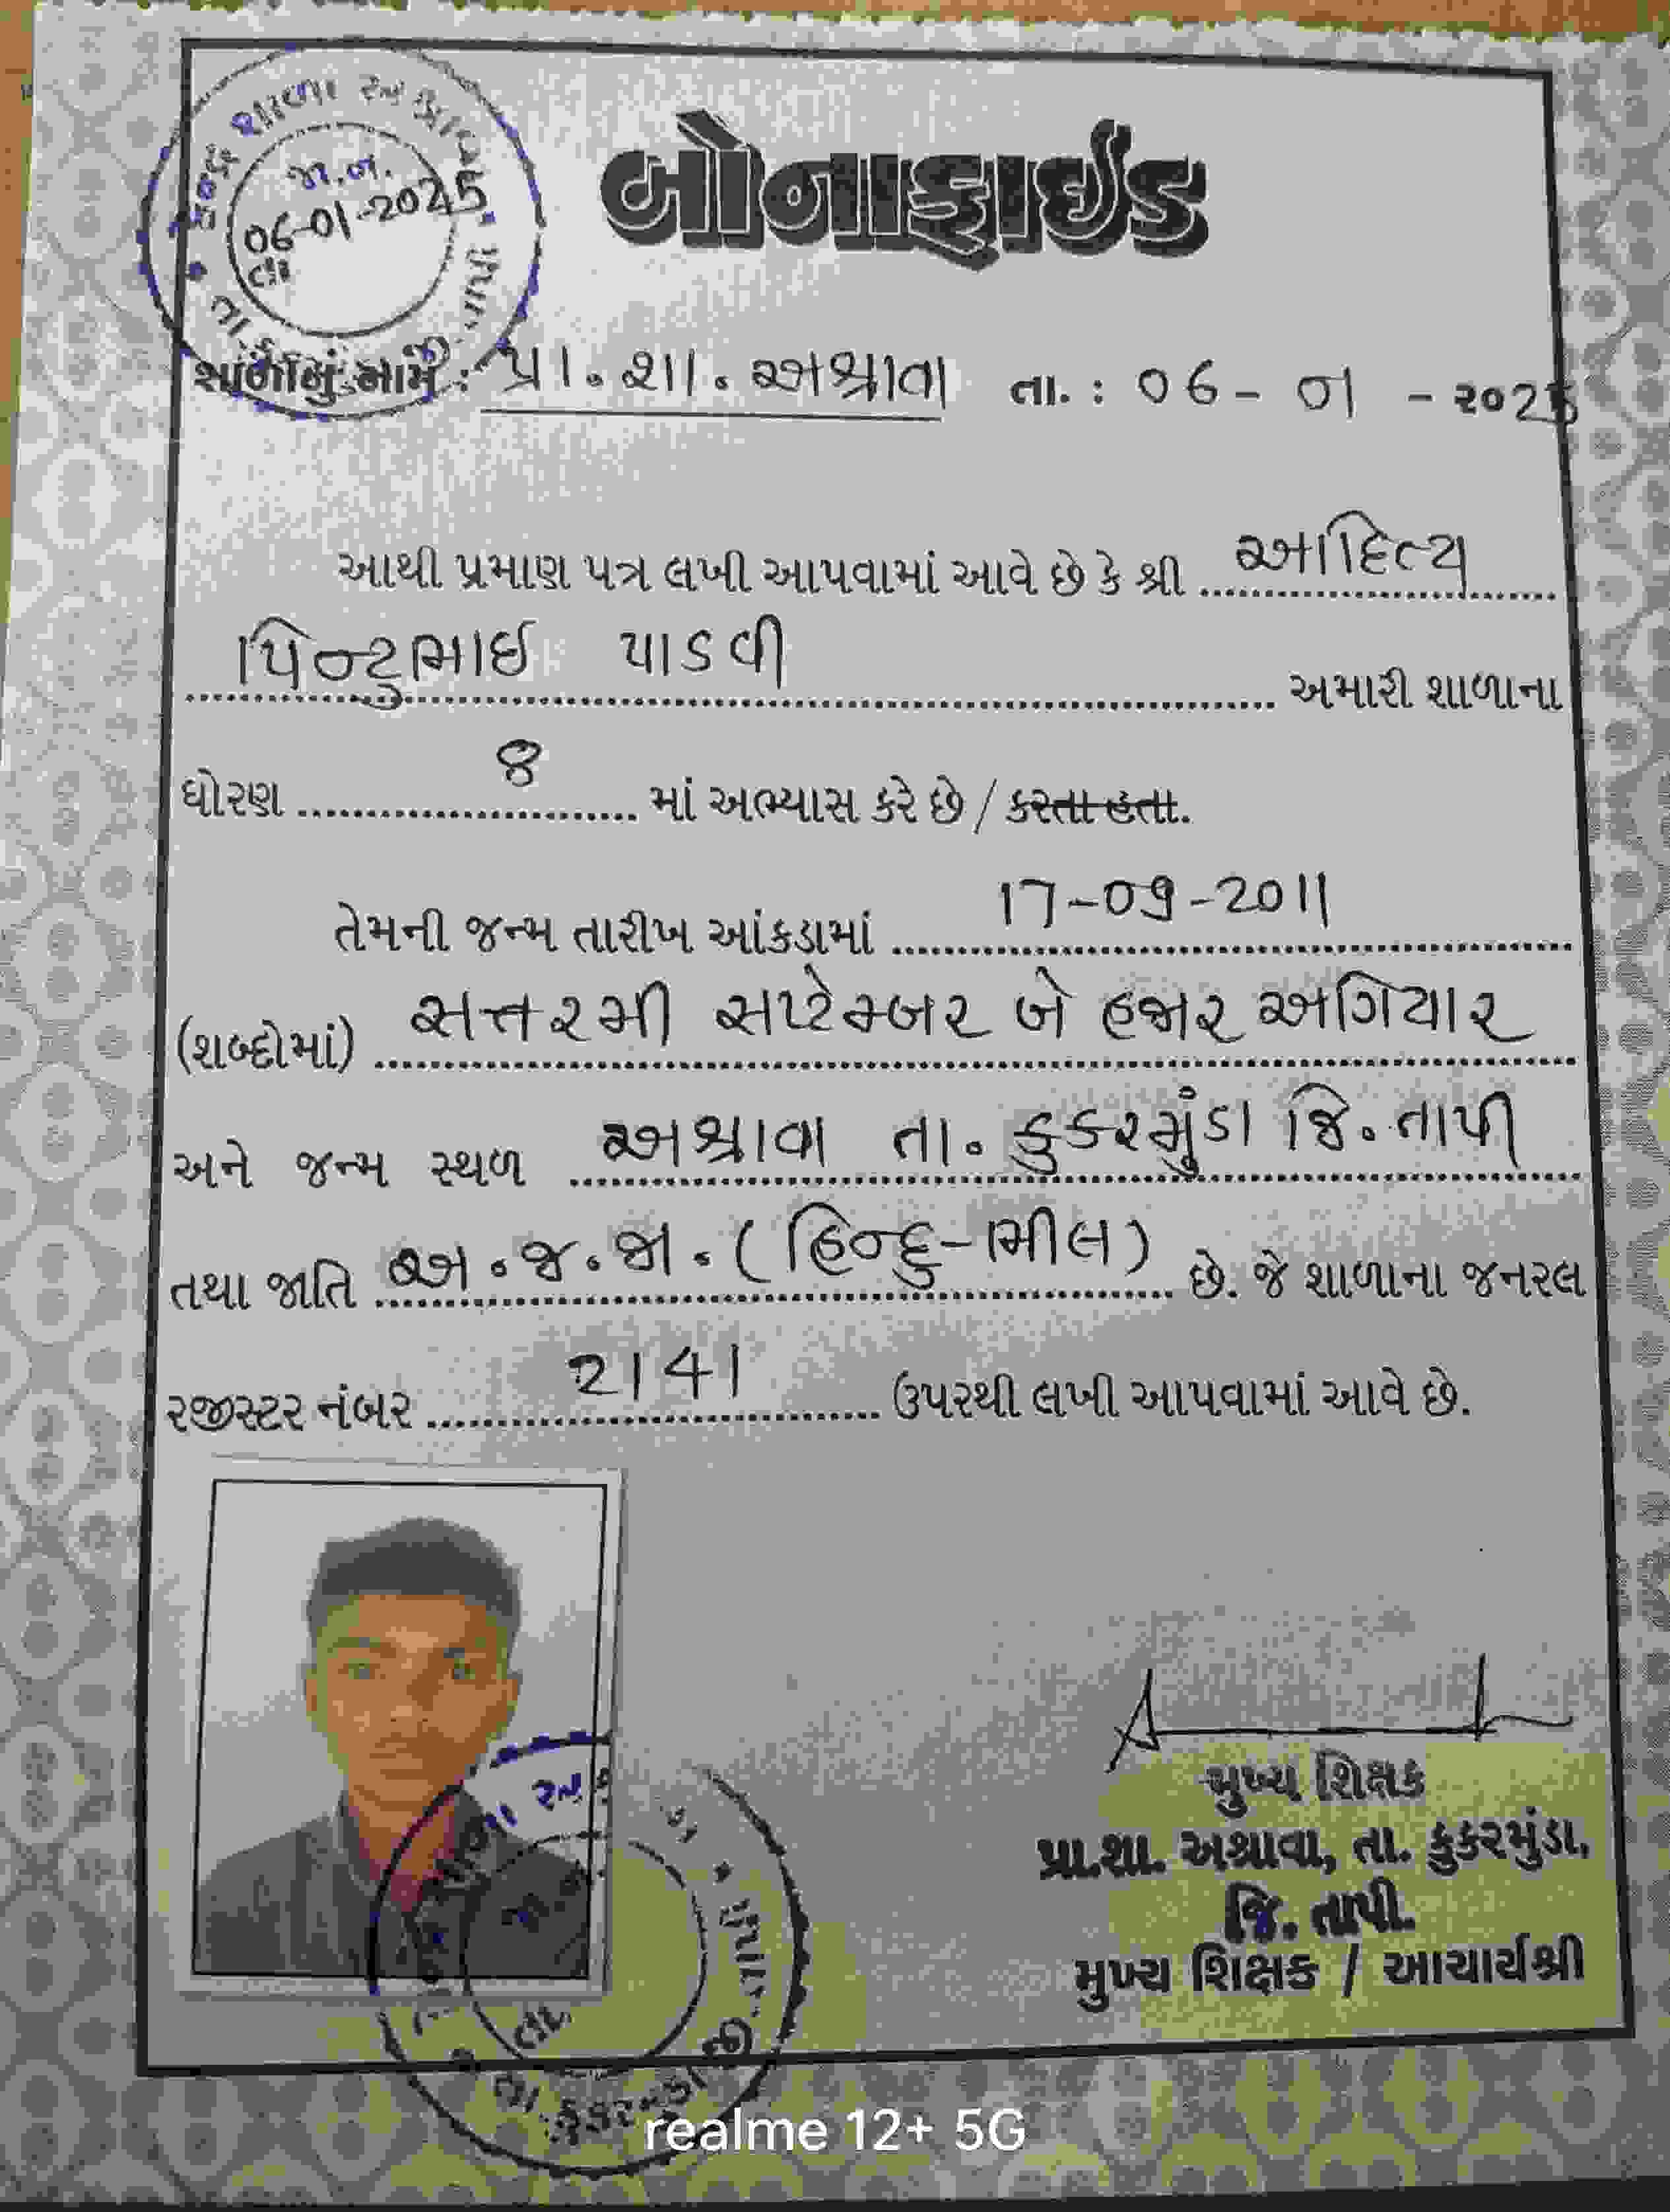 બોનાફાઈડ
જા.નં.
06-01-2025
શાળાનું નામ : પ્રા. શા. અશ્રાવા તા. : 06 - 01 - ૨૦25
આથી પ્રમાણ પત્ર લખી આપવામાં આવે છે કે શ્રી આદિત્ય
પિન્ટુભાઈ પાડવી અમારી શાળાના
ધોરણ 8 માં અભ્યાસ કરે છે / કરતા હતા.
તેમની જન્મ તારીખ આંકડામાં 17-09-2011
(શબ્દોમાં) સત્તરમી સપ્ટેમ્બર બે હજાર અગિયાર
અને જન્મ સ્થળ અશ્રાવા તા. કુકરમુંડા જિ. તાપી
તથા જાતિ અ.જ.જા. (હિન્દુ-ભીલ) છે. જે શાળાના જનરલ
રજીસ્ટર નંબર 2141 ઉપરથી લખી આપવામાં આવે છે.
મુખ્ય શિક્ષક
પ્રા.શા. અશ્રાવા, તા. કુકરમુંડા,
જિ. તાપી.
મુખ્ય શિક્ષક / આચાર્યશ્રી
realme 12+ 5G